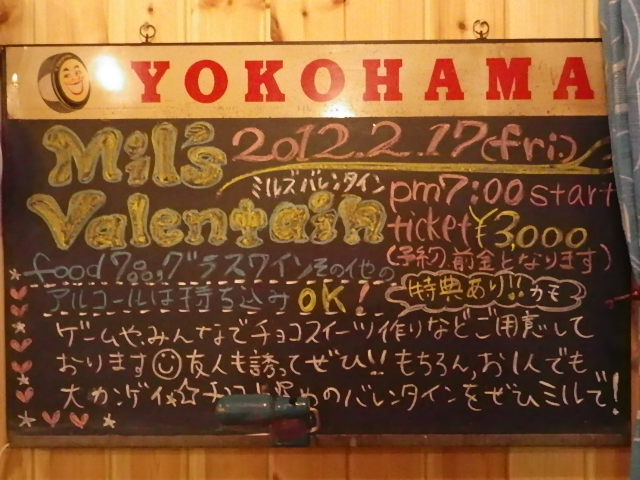 YOKOHAMA
Mil's 2012.2.17(fri.)
ミルズバレンタイン
Valentain
pm7:00 start
ticket ¥3,000
(予約 前金となります)
food 7品, グラスワインその他の
アルコールは持ち込み OK!
特典あり!! カモ
ゲームや、みんなでチョコスイーツ作りなどご用意して
おります☺友人も誘ってぜひ!! もちろん, お1人でも
大カンゲイ☆チョコ のバレンタインをぜひミルで!